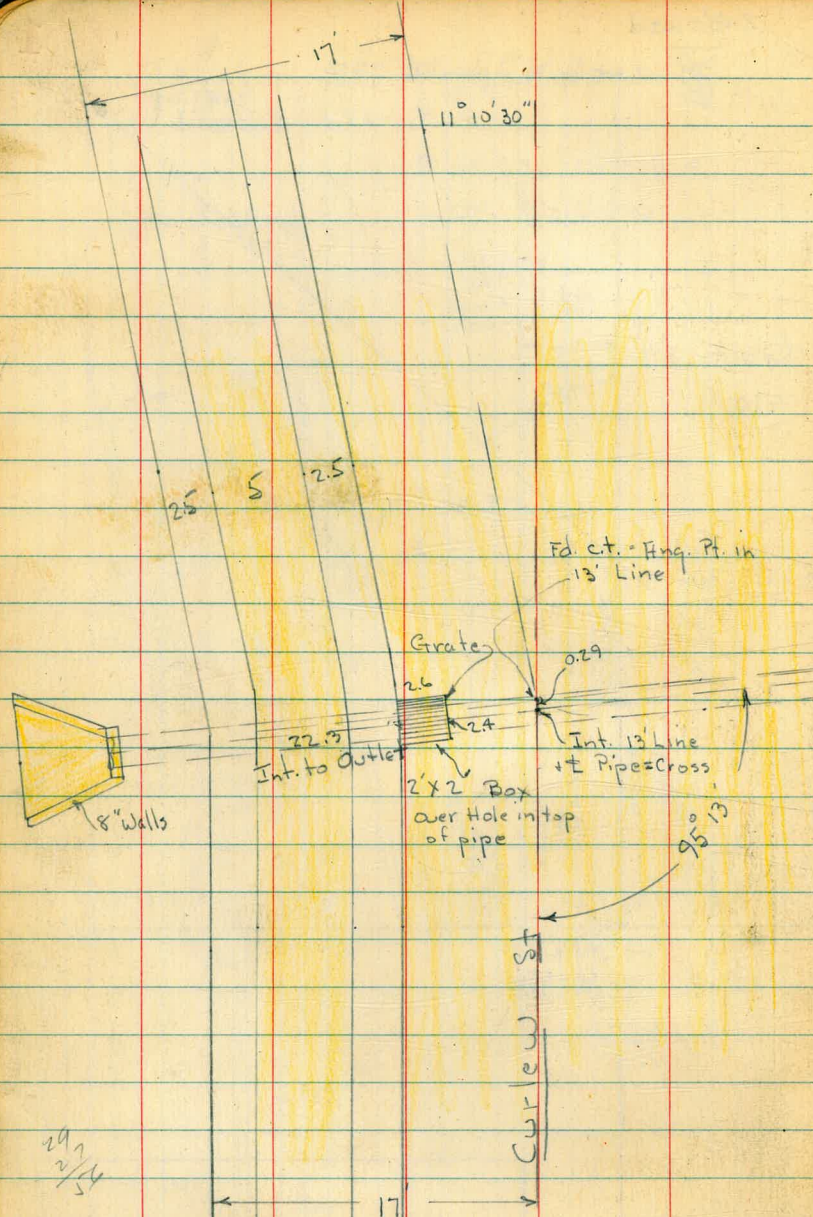 17'
11° 10' 30"
2.5
5
2.5
Fd. c.t. = Ang. Pt. in
13' Line
Grate
0.29
2.6
2.4
22.3
Int. to Outlet
Int. 13' Line
+ ℄ Pipe = Cross
2' X 2' Box
over Hole in top
of pipe
8" Walls
95° 13'
Curlew St
17